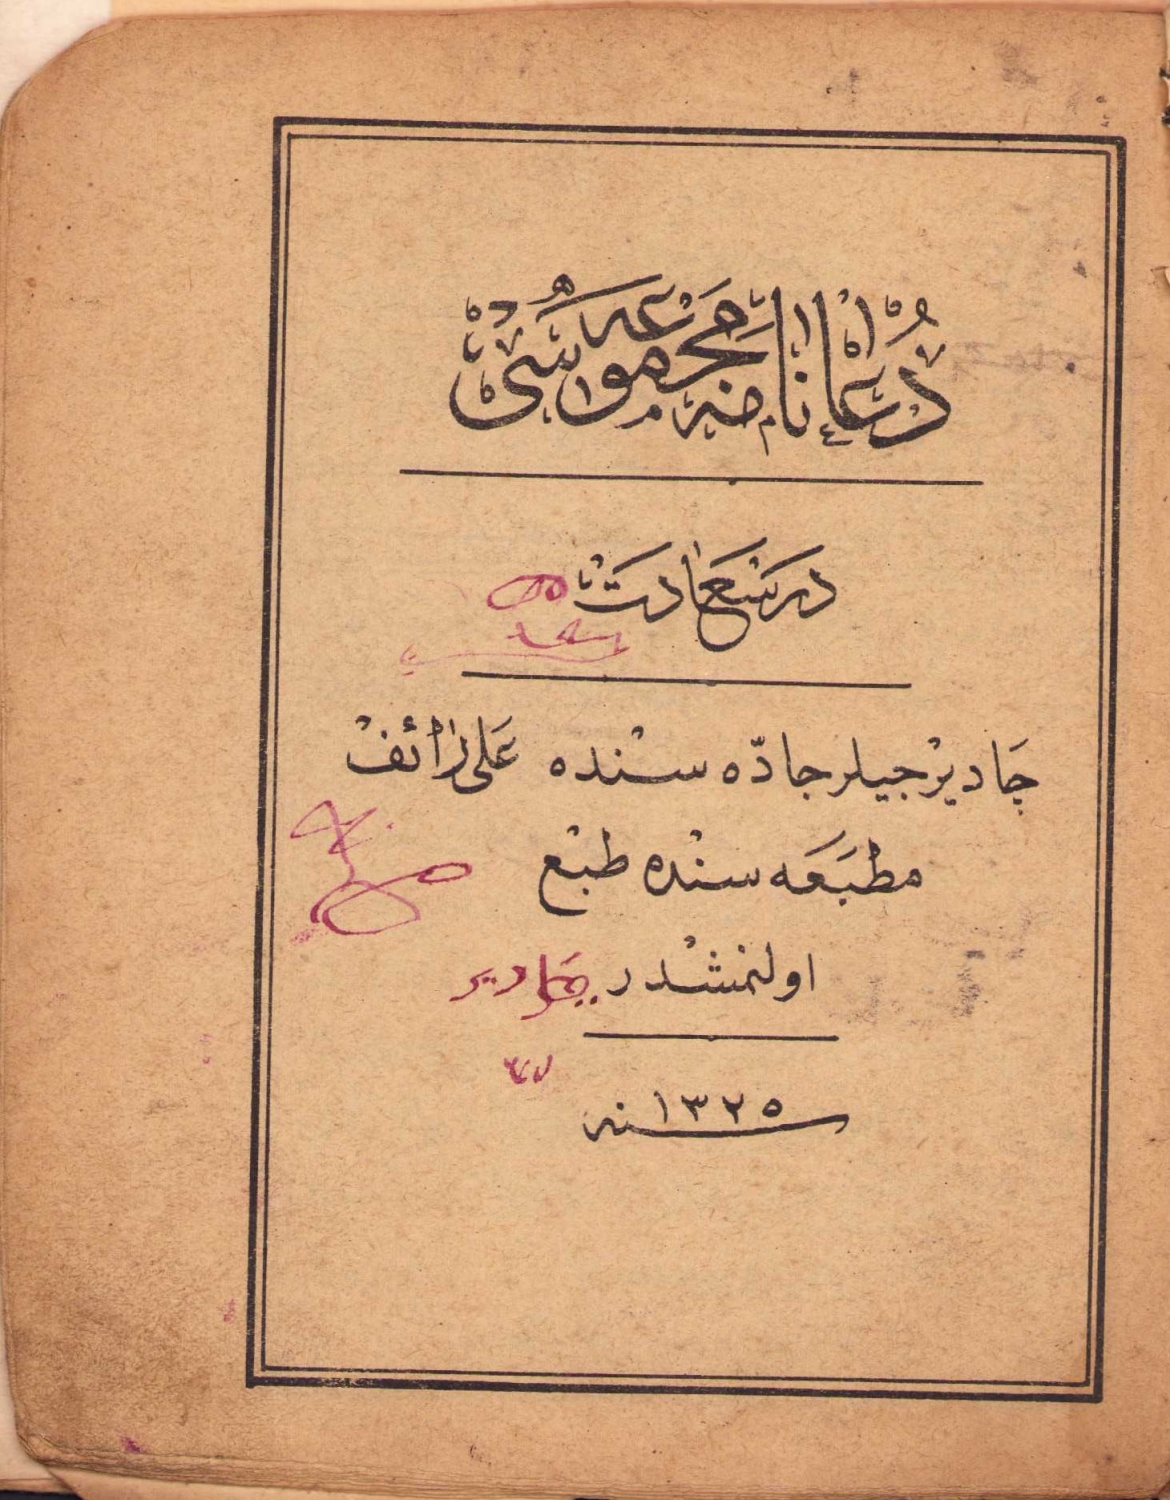 دعانامه مجموعه سى
درسعادت
چاديرجيلر جاده سنده على رائف
مطبعه سنده طبع
اولنمشدر
سنه ١٣٢٥